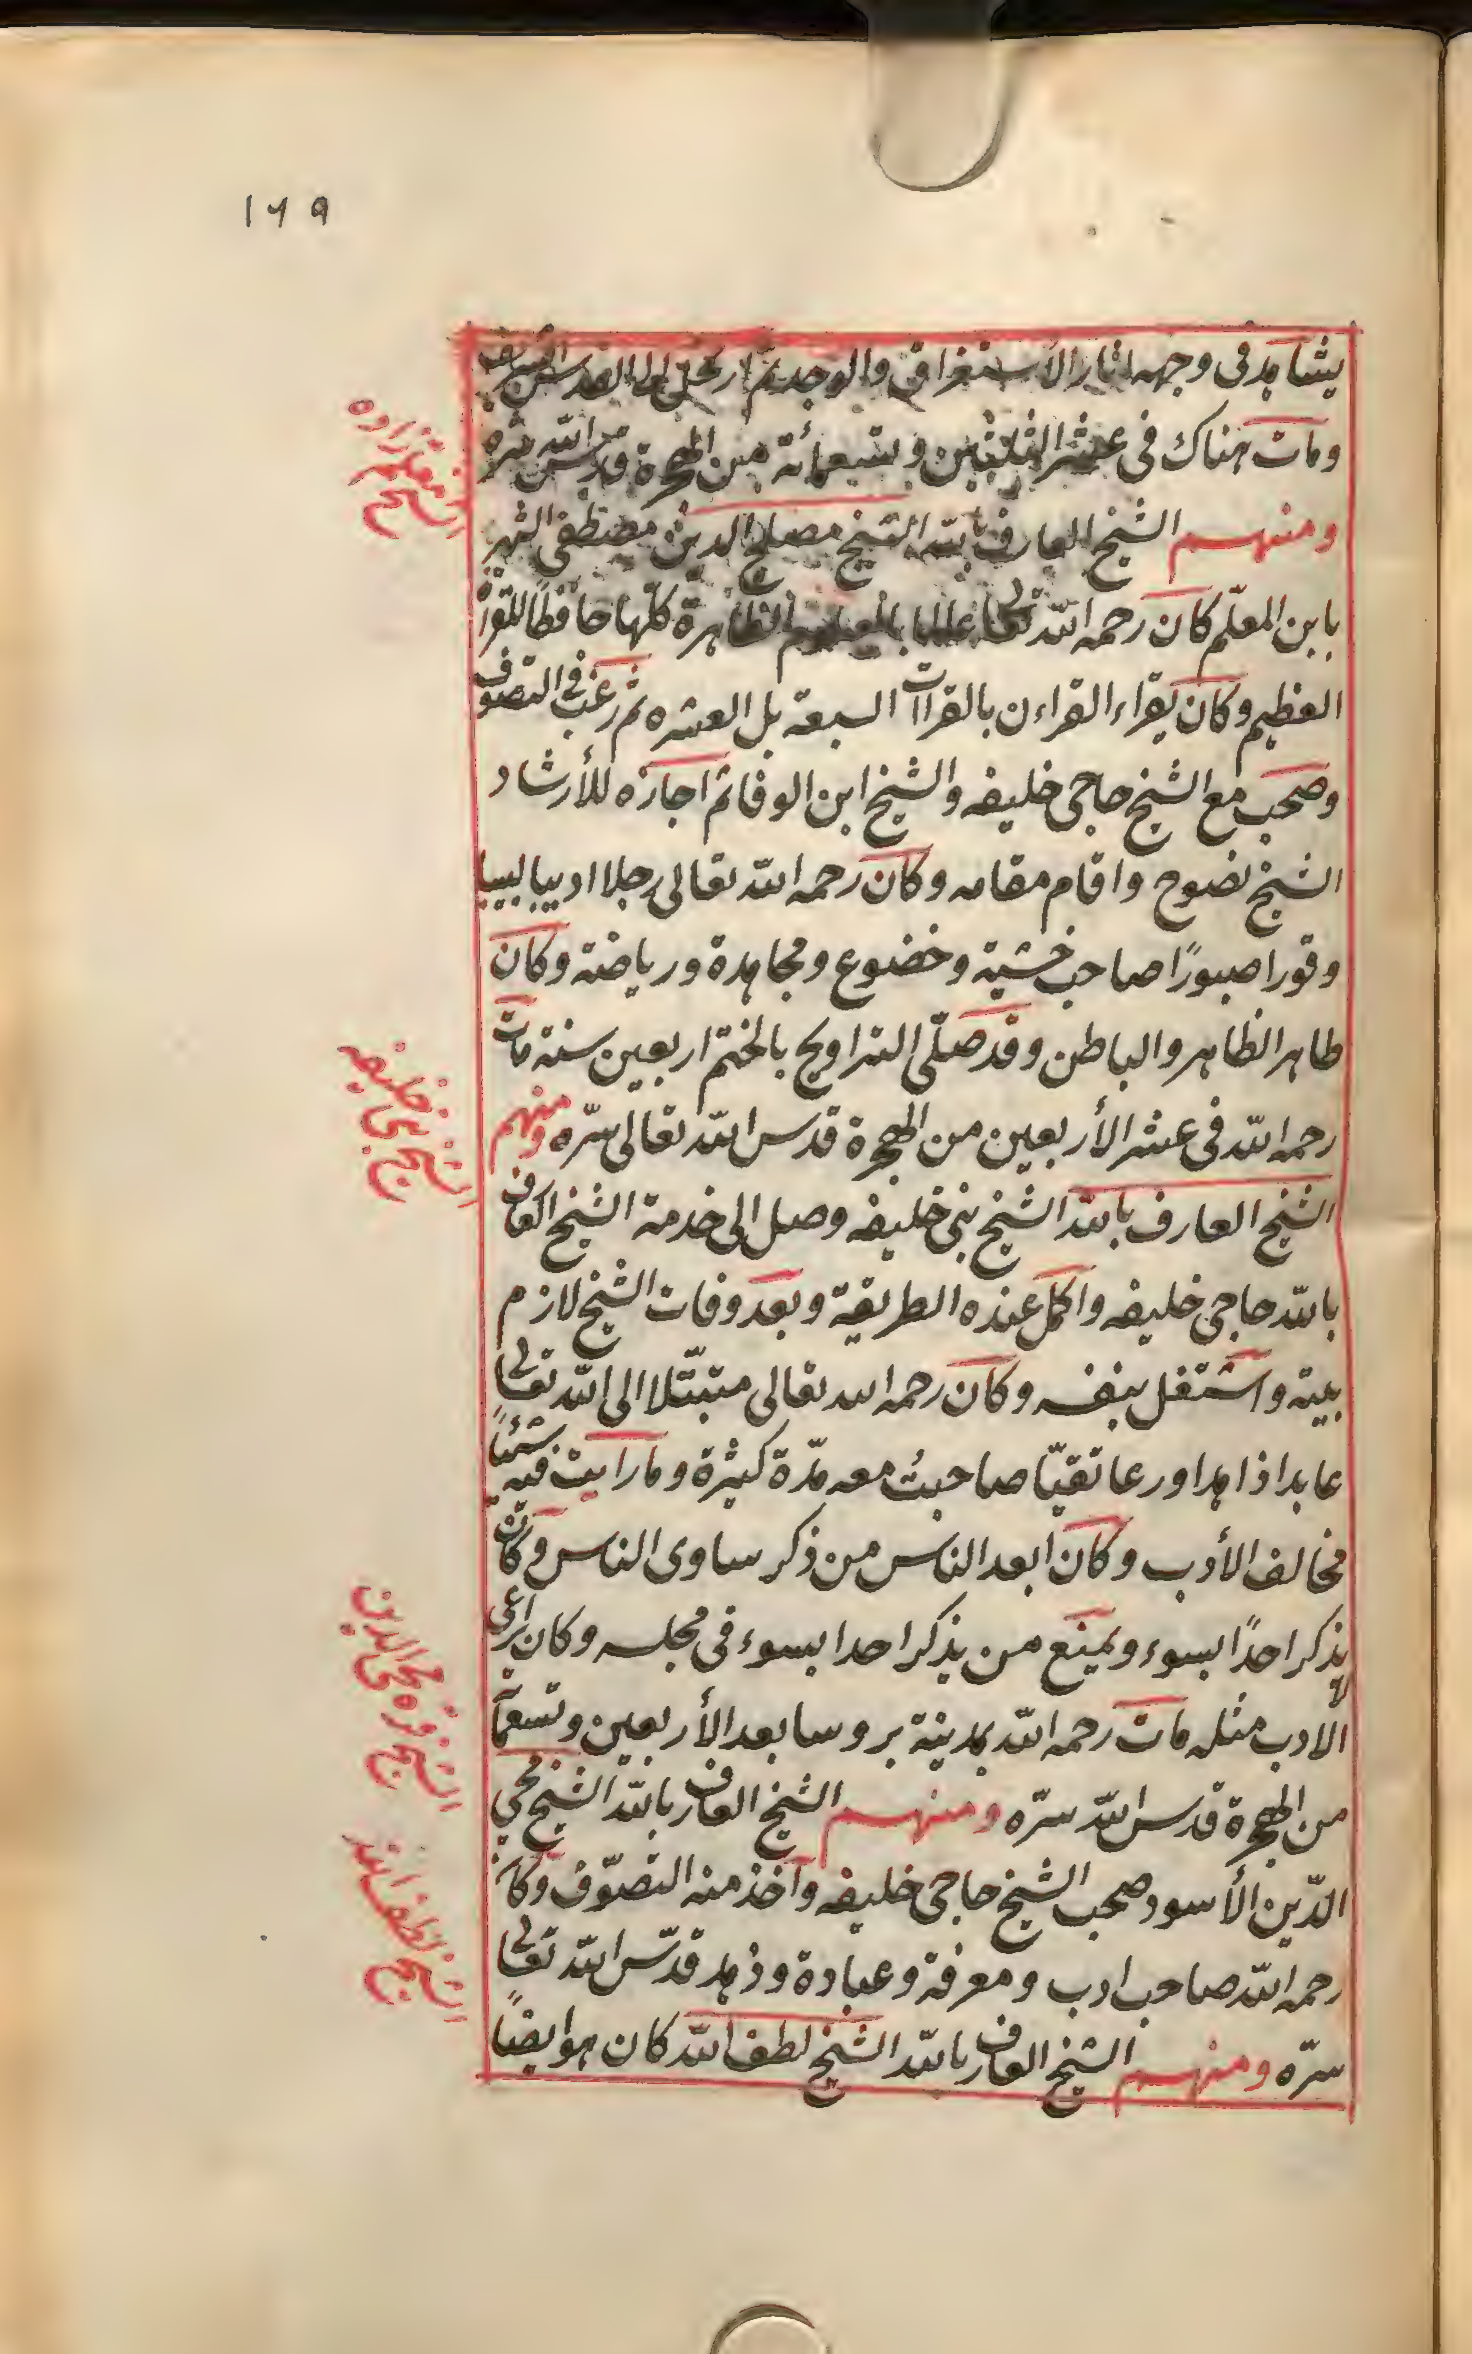 ١٦٩
يشاهد فى وجهه اثار الأستغراق والوجد ثم ارتحل الى القدس الشريف
ومات هناك فى عشر الثلثين وتسعمائة من الهجرة قدس الله سره
ومنهم الشيخ العارف بالله الشيخ مصلح الدين مصطفى الشهير
بابن المعلّم كان رحمه الله تعالى عالما بالعلوم الظاهرة كلّها حافظًا للقرآن
العظيم وكان يقراء القراءن بالقراآت السبعة بل العشره ثم رغب فى التصوف
وصحب مع الشيخ حاجى خليفه والشيخ ابن الوفا ثم اجازه للأرشاد
الشيخ نصوح واقام مقامه وكان رحمه الله تعالى رجلا اديبا لبيبا
وقورا صبورًا صاحب خشية وخضوع ومجاهدة ورياضة وكان
طاهر الظاهر والباطن وقد صلّى التراويح بالختم اربعين سنة مات
رحمه الله فى عشر الأربعين من الهجرة قدس الله تعالى سرّه ومنهم
الشيخ العارف بالله الشيخ بنى خليفه وصل الى خدمة الشيخ العارف
بالله حاجى خليفه واكمل عنده الطريقة وبعد وفات الشيخ لازم
بيته واشتغل بنفسه وكان رحمه الله تعالى متبتّلا الى الله تعالى
عابدا زاهدا ورعا تقيّا صاحبتُ معه مدّة كثيرة وما رايت فيه شيئًا
مخالف الأدب وكان ابعد الناس من ذكر مساوى الناس وكان
لا يذكر احدًا بسوء ويمنع من يذكر احدا بسوء فى مجلسه وكان يراعى
الادب مثله مات رحمه الله بمدينة بروسا بعد الأربعين وتسعمائة
من الهجرة قدس الله سرّه ومنهم الشيخ العارف بالله الشيخ محيي
الدّين الأسود صحب الشيخ حاجى خليفه وآخذ منه التصوّف وكان
رحمه الله صاحب ادب ومعرفة وعبادة وزهد قدّس الله تعالى
سرّه ومنهم الشيخ العارف بالله الشيخ لطف الله كان هو ايضًا
الشيخ معلم زاده
الشيخ بنى خليفه
الشيخ قره محيى الدين
الشيخ لطف الله